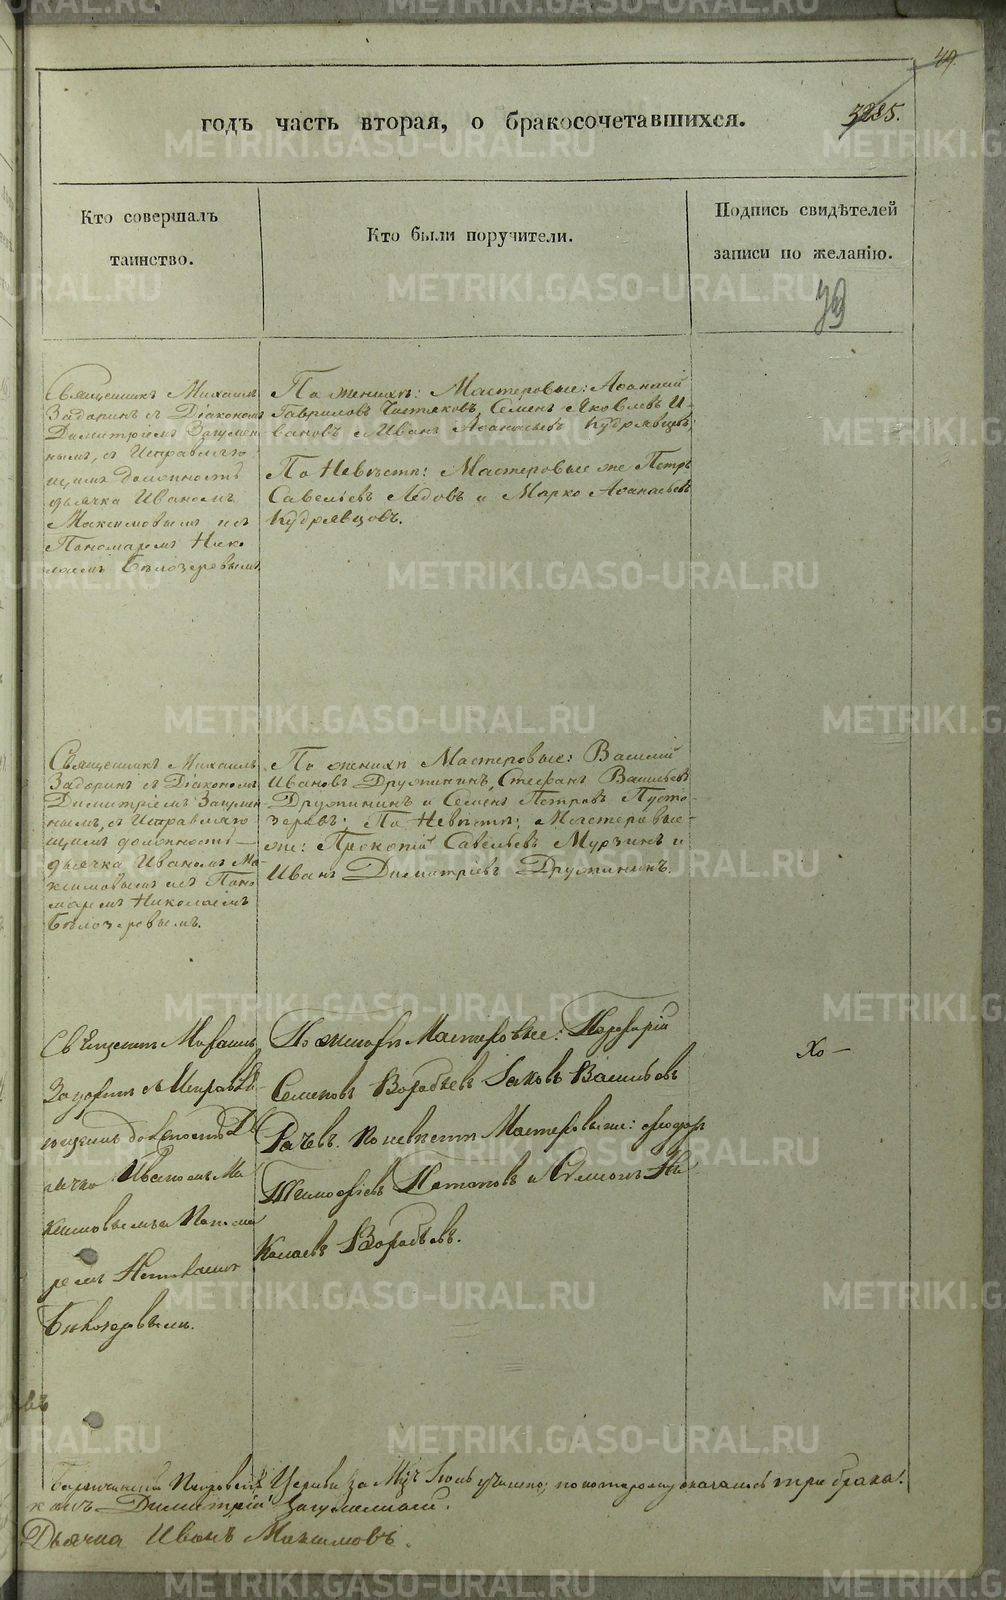 49.
годъ часть вторая, о бракосочетавшихся.
3285.
Кто совершалъ
таинство.
Кто были поручители.
Подпись свидѣтелей
записи по желанію.
Священникъ Михаилъ
Задоринъ съ Діакономъ
Димитріемъ Загумен
нымъ, съ Исправляю
щимъ должность
дьячка Иваномъ
Максимовымъ и съ
Пономаремъ Нико
лаемъ Бѣлозеровымъ
По женихѣ: Мастеровые: Аѳанасій
Гавриловъ Чистяковъ, Семенъ Яковлевъ И-
вановъ и Иванъ Аѳанасьевъ Кудрявцовъ;
По Невѣстѣ: Мастеровые же Петръ
Савельевъ Ледовъ и Марко Аѳанасьевъ
Кудрявцовъ.
Священникъ Михаилъ
Задоринъ съ Діакономъ
Димитріемъ Загумен
нымъ, съ Исправляю
щимъ должность
дьячка Иваномъ Ма
ксимовымъ и съ Поно
маремъ Николаемъ
Бѣлозеровымъ.
По женихѣ Мастеровые: Василій
Ивановъ Дружининъ, Стефанъ Васильевъ
Дружининъ и Семенъ Петровъ Пусто-
зеровъ; По Невѣстѣ: Мастеровые
же: Прокопій Савельевъ Мурзинъ и
Иванъ Димитріевъ Дружининъ.
Священникъ Михаилъ
Задоринъ съ Исправля
ющимъ должность Дь
ячка Иваномъ Ма
ксимовымъ и Понома
ремъ Николаемъ
Бѣлозеровымъ.
По женихѣ Мастеровые:
Семеновъ Воробьевъ Іаковъ Васильевъ
По невѣстѣ Мастеровые: Ѳеодоръ
Тимофѣевъ Потаповъ и Семенъ Ни
колаевъ Воробьевъ.
Церкви за Мцъ Іюль учинено; по которому оказалось три брака.
Димитрій Загуменный.
Дьячка Иванъ Максимовъ.
METRIKI.GASO-URAL.RU